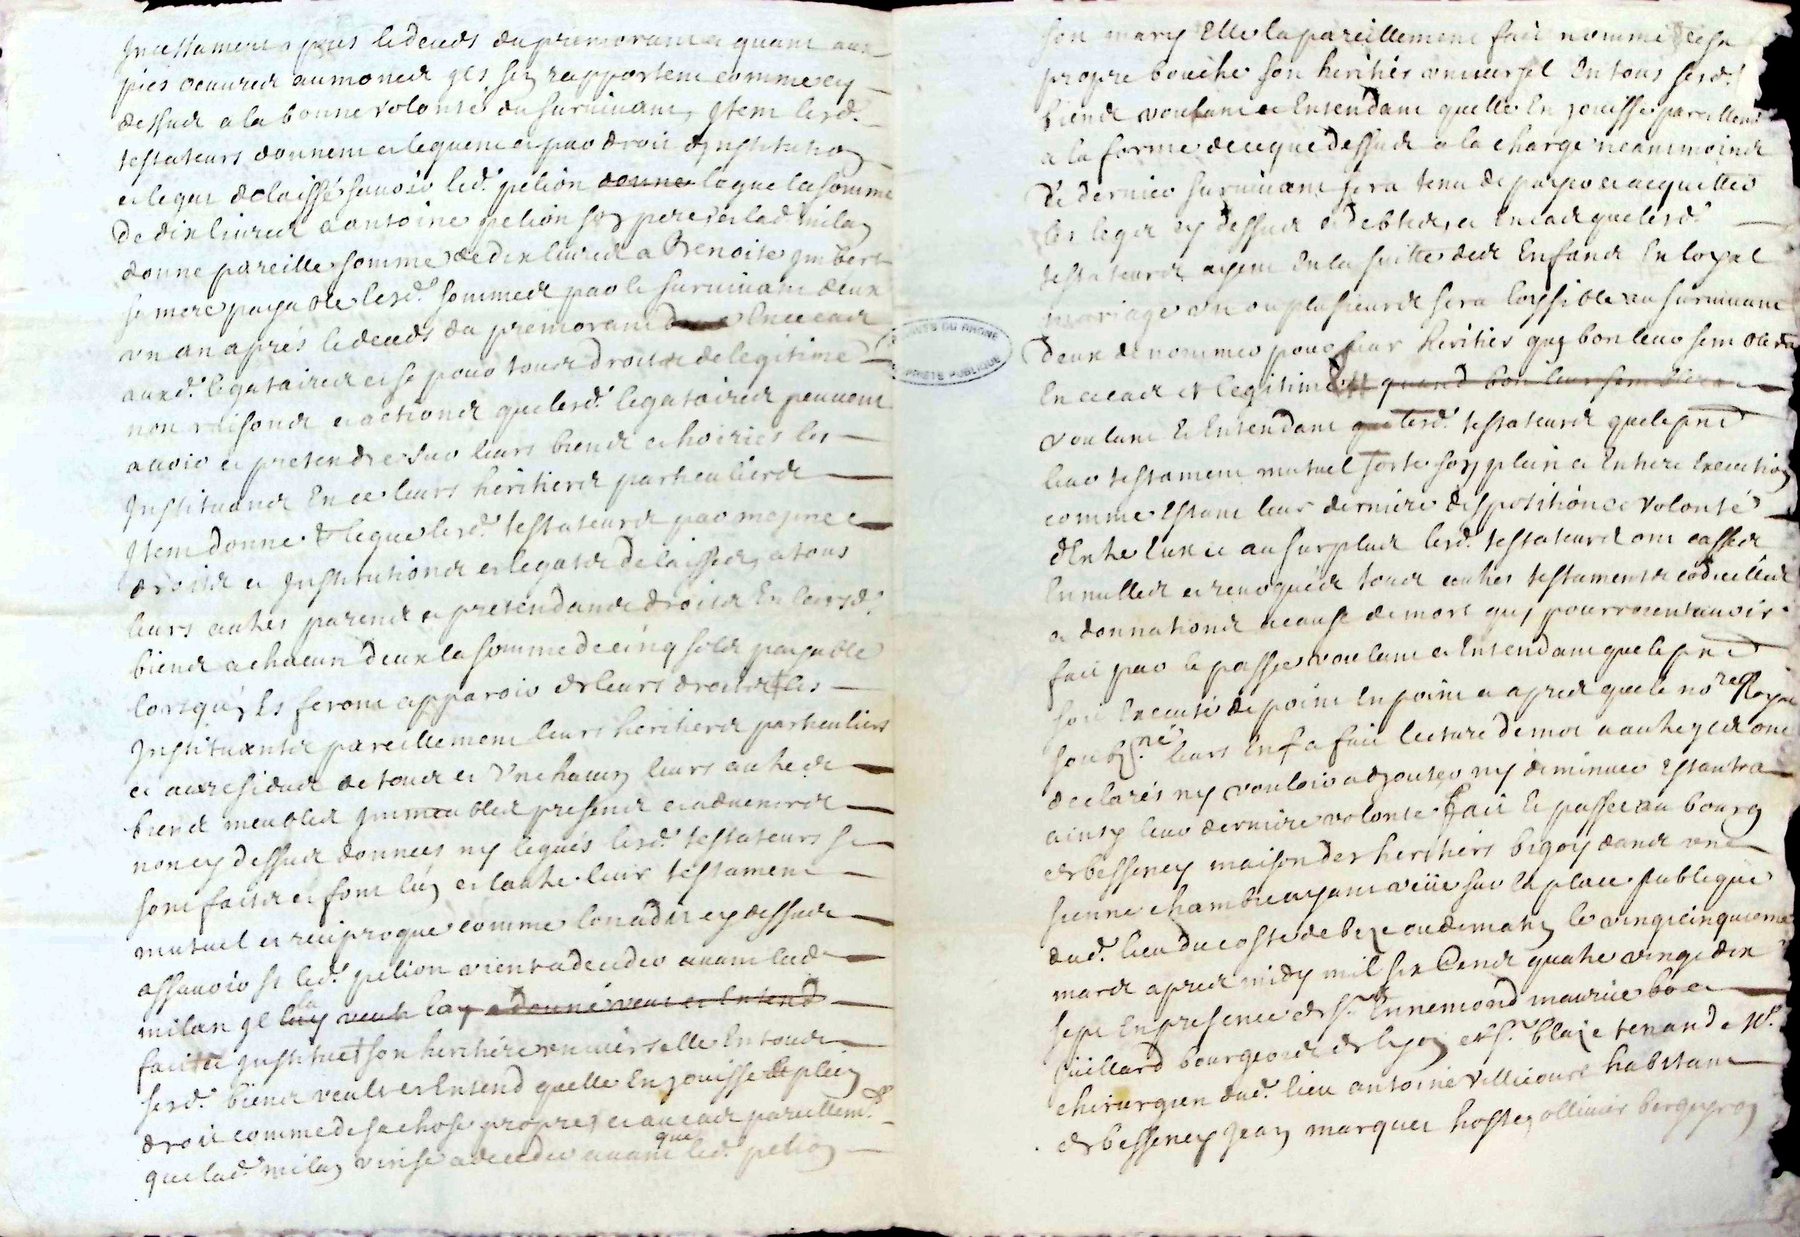 Incessament apres le deceds du premorant et quant aux
pies oeuvres aumones jls sen rapportent comme cy
dessus a la bonne volonté du survivant, Jtem lesd.
testateurs donnent et leguent et par droit dJnstitution
et legat delaissé sçavoir led. petion donne legue la somme
de dix livres a antoine petion son pere et lad. milan
donne pareille somme de dix livres a Benoite Jmbert
sa mere payable lesd. sommes par le survivant deux
un an aprés le deceds du premorant En ce cas
auxd. legataires et ce pour tous droits de legitime
non raisons et actions que lesd. legataires peuvent
avoir et pretendre sur leurs biens et hoiries les
Jnstituans En ce leurs héritiers particuliers
Jtem donne & legue lesd. testateurs par mesme
droits et Jnstitutions et legats delaisses, a tous
leurs autres parens et pretendans droits En leursd.
biens a chacun deux la somme de cinq sols payable
lorsqu'ils feront apparoir de leurs droits les
Jnstituants pareillement leurs heritiers particuliers
et au residus de tous et Un chacun leurs autres
biens meubles Jmmeubles presens et advenirs
non cy dessus donnees ny legués lesd. testateurs se
sont faits et font l'un et lautre leur testament
mutuel et reciproque comme lon a dit cy dessus
assavoir si led. petion vient a deceder avant lad.
milan Jl la luy veut la a donné veut et Entend
fait et Jnstitue son heritiere universelle En tous
sesd. biens veult et Entend quelle En jouisse de plein
droit comme de sa chose propre, et au cas pareillemt.
que lad. milan vinse a deceder avant que led. petion
son mary Elle la pareillement fait nommé de sa
propre bouche son heritier universel En tous sesd.
biens voulant et Entendant quelle En jouisse pareillemt
a la forme de ce que dessus a la charge neantmoins
dernier survivant sera tenu de payer et acquitter
les legs cy dessus et debtes, et En cas que lesd.
testateurs ayent En la suitte des Enfans En loyal
mariage un ou plusieurs sera loysible au survivant
deux de nommer pour leur héritier quy bon leur semblera
En ce cas et legitime quand bon leur semblera
voulant et Entendant que lesd. testateurs que le pnt
leur testament mutuel sorte son plain et Entiere Execution
comme Estant leur derniere disposition et volonté
dEntre Eux et au surplus lesd. testateurs ont casses
Ennulles et revoqués tous autres testaments codicilles
et donnations a cause de mort quj pourroient avoir
fait par le passé, voulant et Entendant que le pnt
soit Executé de point En point et apres que le nore Royal
soubzné leurs En a fait lecture de mot a autre, jls ont
declarés ny vouloir adjouster ny diminuer Estant la
ainsy leur derniere volonté. Fait et passé au bourg
de bessenay maison des heritiers bigoy dans une
sienne chambre ayant veüe sur la place publique
dud. lieu du costé de bize ou de matin le vingt cinquieme
mars apres midy mil six Cens quatre vingt dix
sept En presence de sr. Ennemond maurice
Juillard bourgeois de lyon et sr. blaize tenand Mr.
chirurgien dud. lieu antoine Villecourt habitant
de bessenay Jean marquet hoste, ollivier bergeron